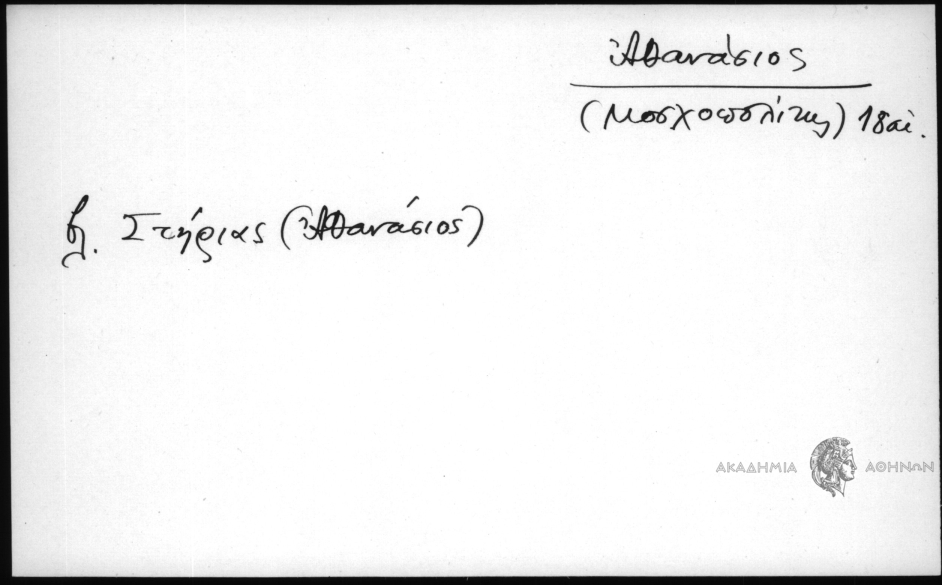 Ἀθανάσιος
(Μοσχοπολίτης) 18 αἰ.
βλ. Στήριας (Ἀθανάσιος)
ΑΚΑΔΗΜΙΑ ΑΘΗΝΩΝ